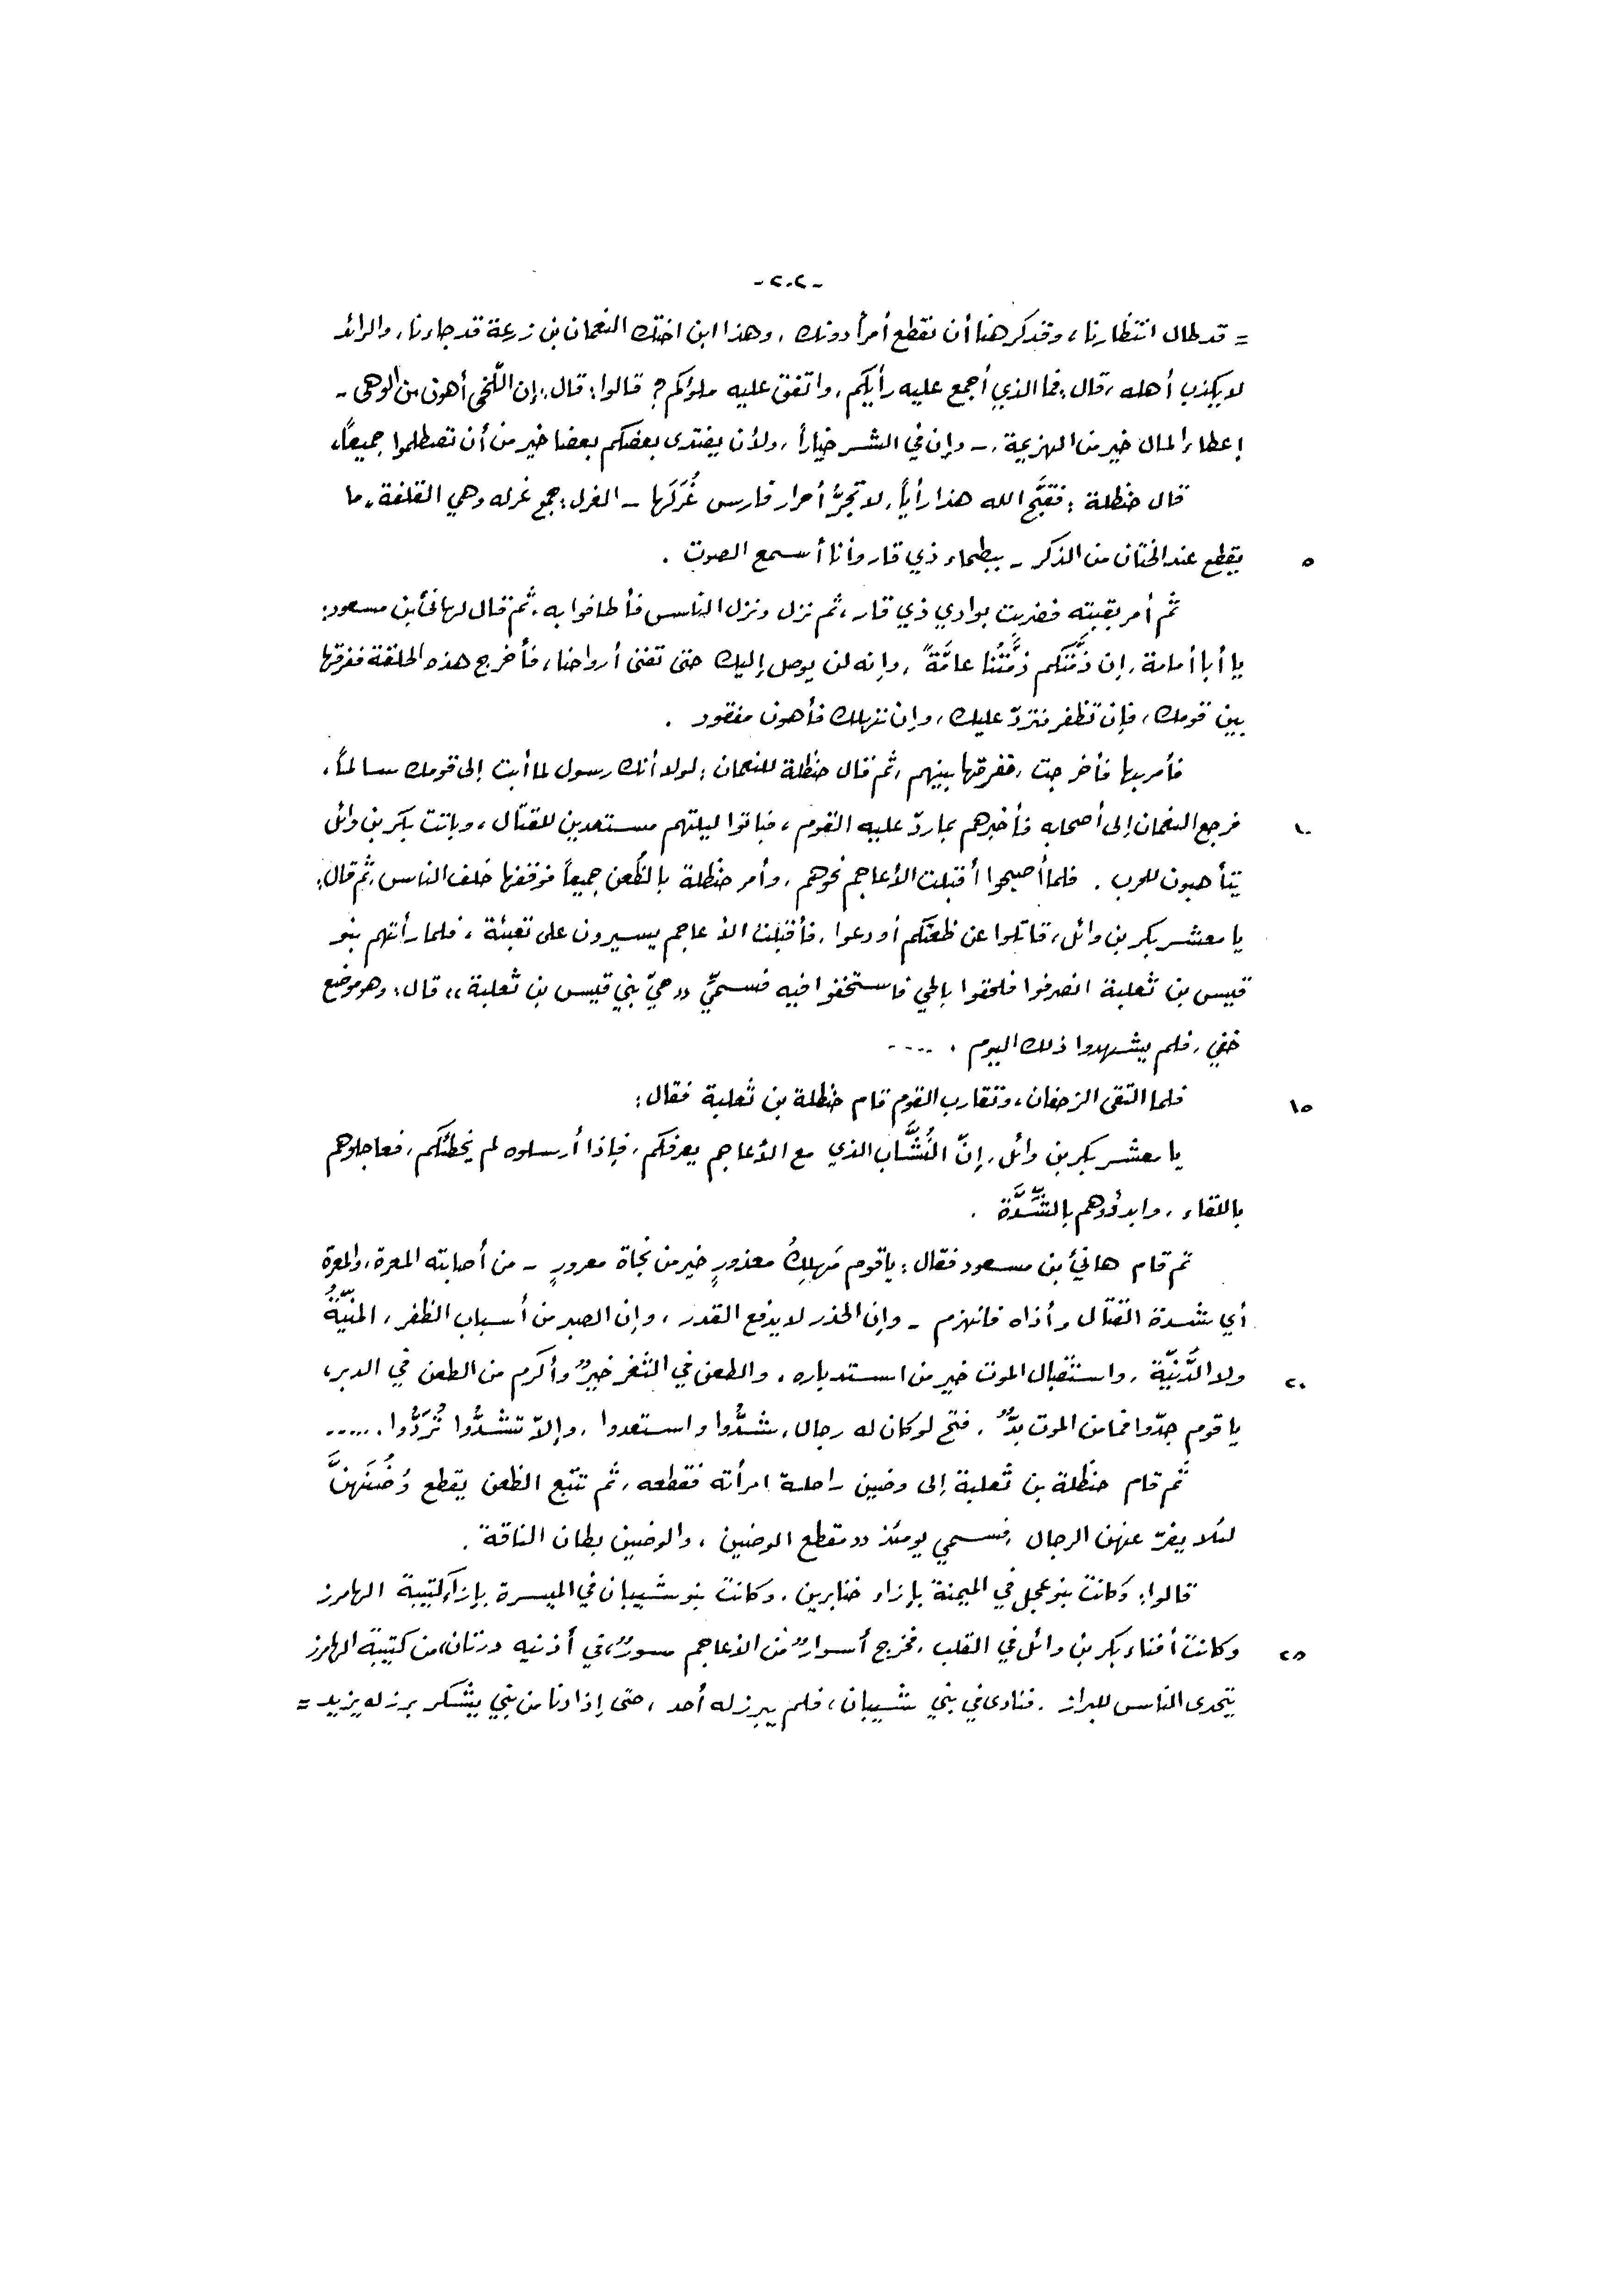 -٢٠٢-
= قد طال انتظارنا، وقد كرهنا أن نقطع أمراً دونك، وهذا ابن اختك النعمان بن زرعة قد جاءنا، والرائد
لا يكذب أهله، قال: فما الذي أجمع عليه رأيكم، واتفق عليه ملؤكم؟ قالوا: قال: إن اللَّخي أهون من الوهي -
إعطاء المال خير من الهزيمة، - وإن في الشر خياراً، ولأن يفتدى بعضكم بعضا خير من أن تصطلموا جميعاً،
قال حنظلة: فقبَّح الله هذا رأياً، لا تجرُّ أحرار فارس غُرَلَها - الغرل: جمع غرله وهي القلفة، ما
٥ يقطع عند الختان من الذكر - ببطحاء ذي قار وأنا أسمع الصوت .
ثم أمر بقبته فضربت بوادي ذي قار، ثم نزل ونزل الناس فأطافوا به، ثم قال لهانئ بن مسعود:
يا أبا أمامة، إن ذمَّتَكم ذمَّتُنا عامَّةً، وإنه لن يوصل إليك حتى تفنى أرواحنا، فأخرج هذه الحلقة ففرقها
بين قومك، فإن تظفر فتردّ عليك، وإن تهلك فأهون مفقود .
فأمر بها فأخرجت، ففرقها بينهم، ثم قال حنظلة للنعمان: لولا أنك رسول لما أبت إلى قومك سالماً،
١٠ فرجع النعمان إلى أصحابه فأخبرهم بما ردّ عليه القوم، فباتوا ليلتهم مستعدين للقتال، وباتت بكر بن وائل
يتأهبون للحرب . فلما أصبحوا أقبلت الأعاجم نحوهم، وأمر حنظلة بالظُعن جميعاً فوقفها خلف الناس، ثم قال:
يا معشر بكر بن وائل، قاتلوا عن ظعنكم أو دعوا، فأقبلت الأعاجم يسيرون على تعبئة، فلما رأتهم بنو
قيس بن ثعلبة انصرفوا فلحقوا بالحي فاستخفوا فيه فسميَّ «حيّ بني قيس بن ثعلبة» قال: وهو موضع
خفي، فلم يشهدوا ذلك اليوم . ....
١٥ فلما التقى الزحفان، وتقارب القوم قام حنظلة بن ثعلبة فقال:
يا معشر بكر بن وائل، إنّ النُشَّاب الذي مع الأعاجم يعرفكم، فإذا أرسلوه لم يخطئكم، فعاجلوهم
باللقاء، وابدؤوهم بالشِّدَّة .
ثم قام هانئ بن مسعود فقال: يا قوم مَهلِكُ معذورٍ خير من نجاة معرورٍ - من أصابته المعرة، والمعرة
أي شدة القتال وأذاه فانهزم - وإن الحذر لا يدفع القدر، وإن الصبر من أسباب الظفر، المنيّةُ
٢٠ ولا الدَّنيّة، واستقبال الموت خير من استدباره، والطعن في الثغر خيرٌ وأكرم من الطعن في الدبر،
يا قوم جدّوا فما من الموت بدٌّ، فتح لو كان له رجال، شدُّوا واستعدوا، وإلاّ تشدُّوا تُرَدُّوا. .....
ثم قام حنظلة بن ثعلبة إلى وضين راحلة امرأته فقطعه، ثم تتبع الظعن يقطع وُضُنَهنَّ
لئلا يفرّ عنهن الرجال، فسمي يومئذ «مقطع الوضين، والوضين بطان الناقة .
قالوا: وكانت بنو عجل في الميمنة بإزاء خنابرين، وكانت بنو شيبان في الميسرة بإزاء كتيبة الهامرز
٢٥ وكانت أفناء بكر بن وائل في القلب، فخرج أسوارٌ من الأعاجم مسورٌ، في أذنيه درتان، من كتيبة الهامرز
يتحدى الناس للبراز، فنادى في بني شيبان، فلم يبرز له أحد، حتى إذا دنا من بني يشكر برز له يزيد =